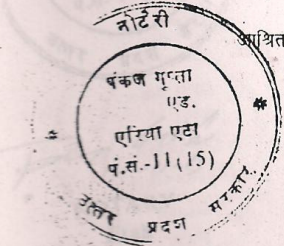 नोटेरी
आश्रित
पंकज गुप्ता
एड.
एरिया एटा
पं.सं.-11(15)
उत्तर प्रदेश सरकार